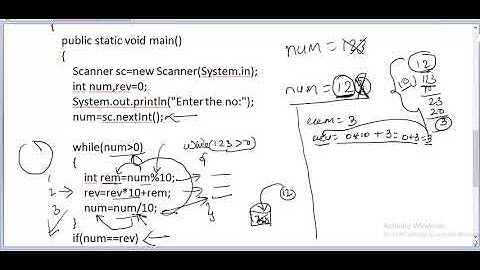 {
public static void main()
{
Scanner sc=new Scanner(System.in);
int num,rev=0;
System.out.println("Enter the no:");
num=sc.nextInt();
while(num>0)
{
int rem=num%10;
rev=rev*10+rem;
num=num/10;
}
if(num==rev)
while(123>0)
{
}
1
2
3
123
num = 123
num = 12
rem = 3
rev = 0*10+3=0+3=3
12
10 123
10
23
20
3
Activate Windows